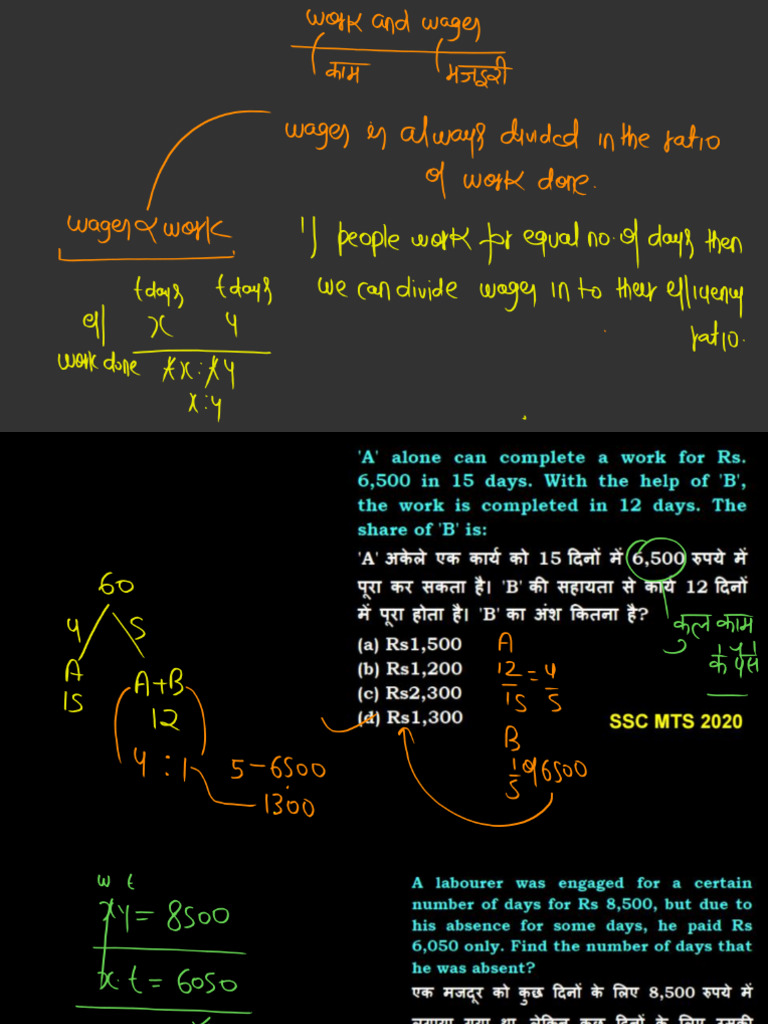 work and wages
काम मजदूरी
wages is always divided in the ratio
of work done.
wages ∝ work
1) people work for equal no. of days then
we can divide wages in to their efficiency
ratio.
t days t days
eff x y
work done tx : ty
x : y
'A' alone can complete a work for Rs.
6,500 in 15 days. With the help of 'B',
the work is completed in 12 days. The
share of 'B' is:
'A' अकेले एक कार्य को 15 दिनों में 6,500 रुपये में
पूरा कर सकता है। 'B' की सहायता से कार्य 12 दिनों
में पूरा होता है। 'B' का अंश कितना है?
(a) Rs1,500
(b) Rs1,200
(c) Rs2,300
(d) Rs1,300
SSC MTS 2020
कुल काम
के पैसे
60
4 5
A A+B
15 12
4 : 1
5 - 6500
1300
A
12/15 = 4/5
B
1/5 of 6500
w t
xy = 8500
x.t = 6050
A labourer was engaged for a certain
number of days for Rs 8,500, but due to
his absence for some days, he paid Rs
6,050 only. Find the number of days that
he was absent?
एक मजदूर को कुछ दिनों के लिए 8,500 रुपये में